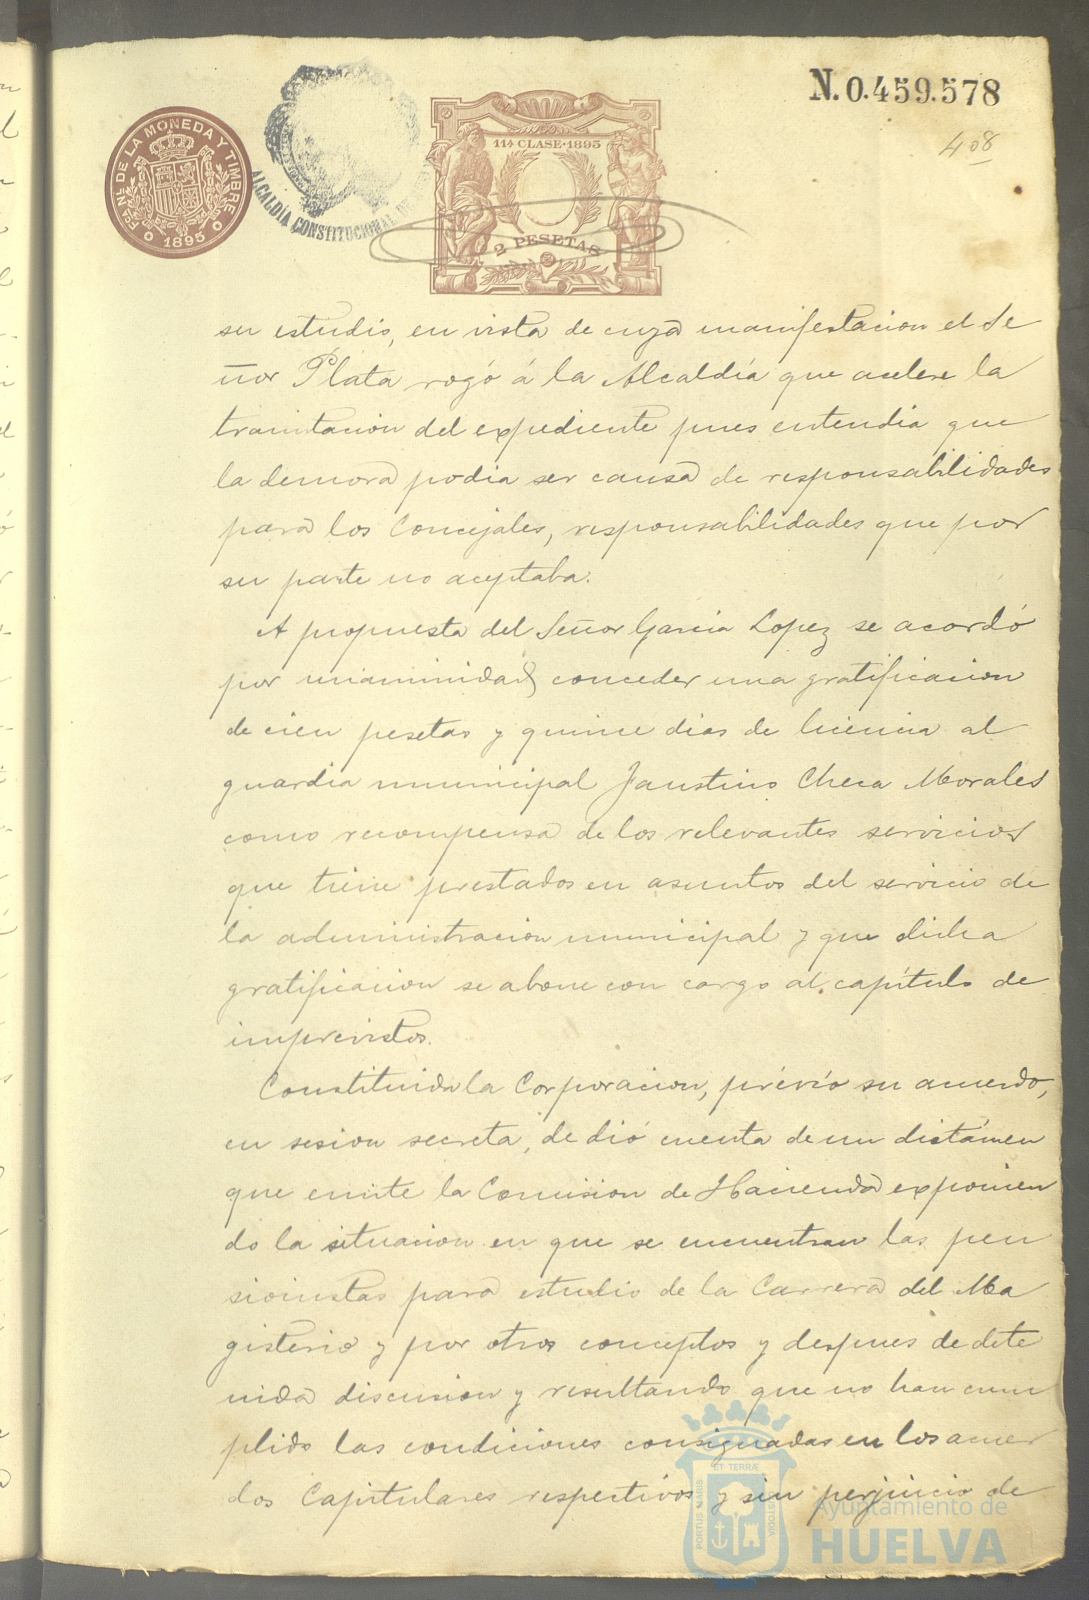 N. 0.459.578
408
FCA. NL. DE LA MONEDA Y TIMBRE
1895
ALCALDÍA CONSTITUCIONAL DE
11ª CLASE·1895
2 PESETAS
su estudio, en vista de cuya manifestacion el Se
ñor Plata rogó á la Alcaldía que acelere la
tramitacion del expediente pues entendia que
la demora podia ser causa de responsabilidades
para los Concejales, responsabilidades que por
su parte no aceptaba.
A propuesta del Señor Garcia Lopez se acordó
por unanimidad conceder una gratificacion
de cien pesetas y quince dias de licencia al
guardia municipal Faustino Checa Morales
como recompensa de los relevantes servicios
que tiene prestados en asuntos del servicio de
la administracion municipal y que dicha
gratificacion se abone con cargo al capítulo de
imprevistos.
Constituida la Corporacion, prévio su acuerdo,
en sesion secreta, se dió cuenta de un dictámen
que emite la Comision de Hacienda exponien
do la situacion en que se encuentran las pen
sionistas para estudio de la Carrera del Ma
gisterio y por otros conceptos y despues de dete
nida discusion y resultando que no han cum
plido las condiciones consignadas en los acuer
dos Capitulares respectivos y sin perjuicio de
PORTUS MARIS
ET TERRÆ
CUSTODIA
Ayuntamiento de
HUELVA